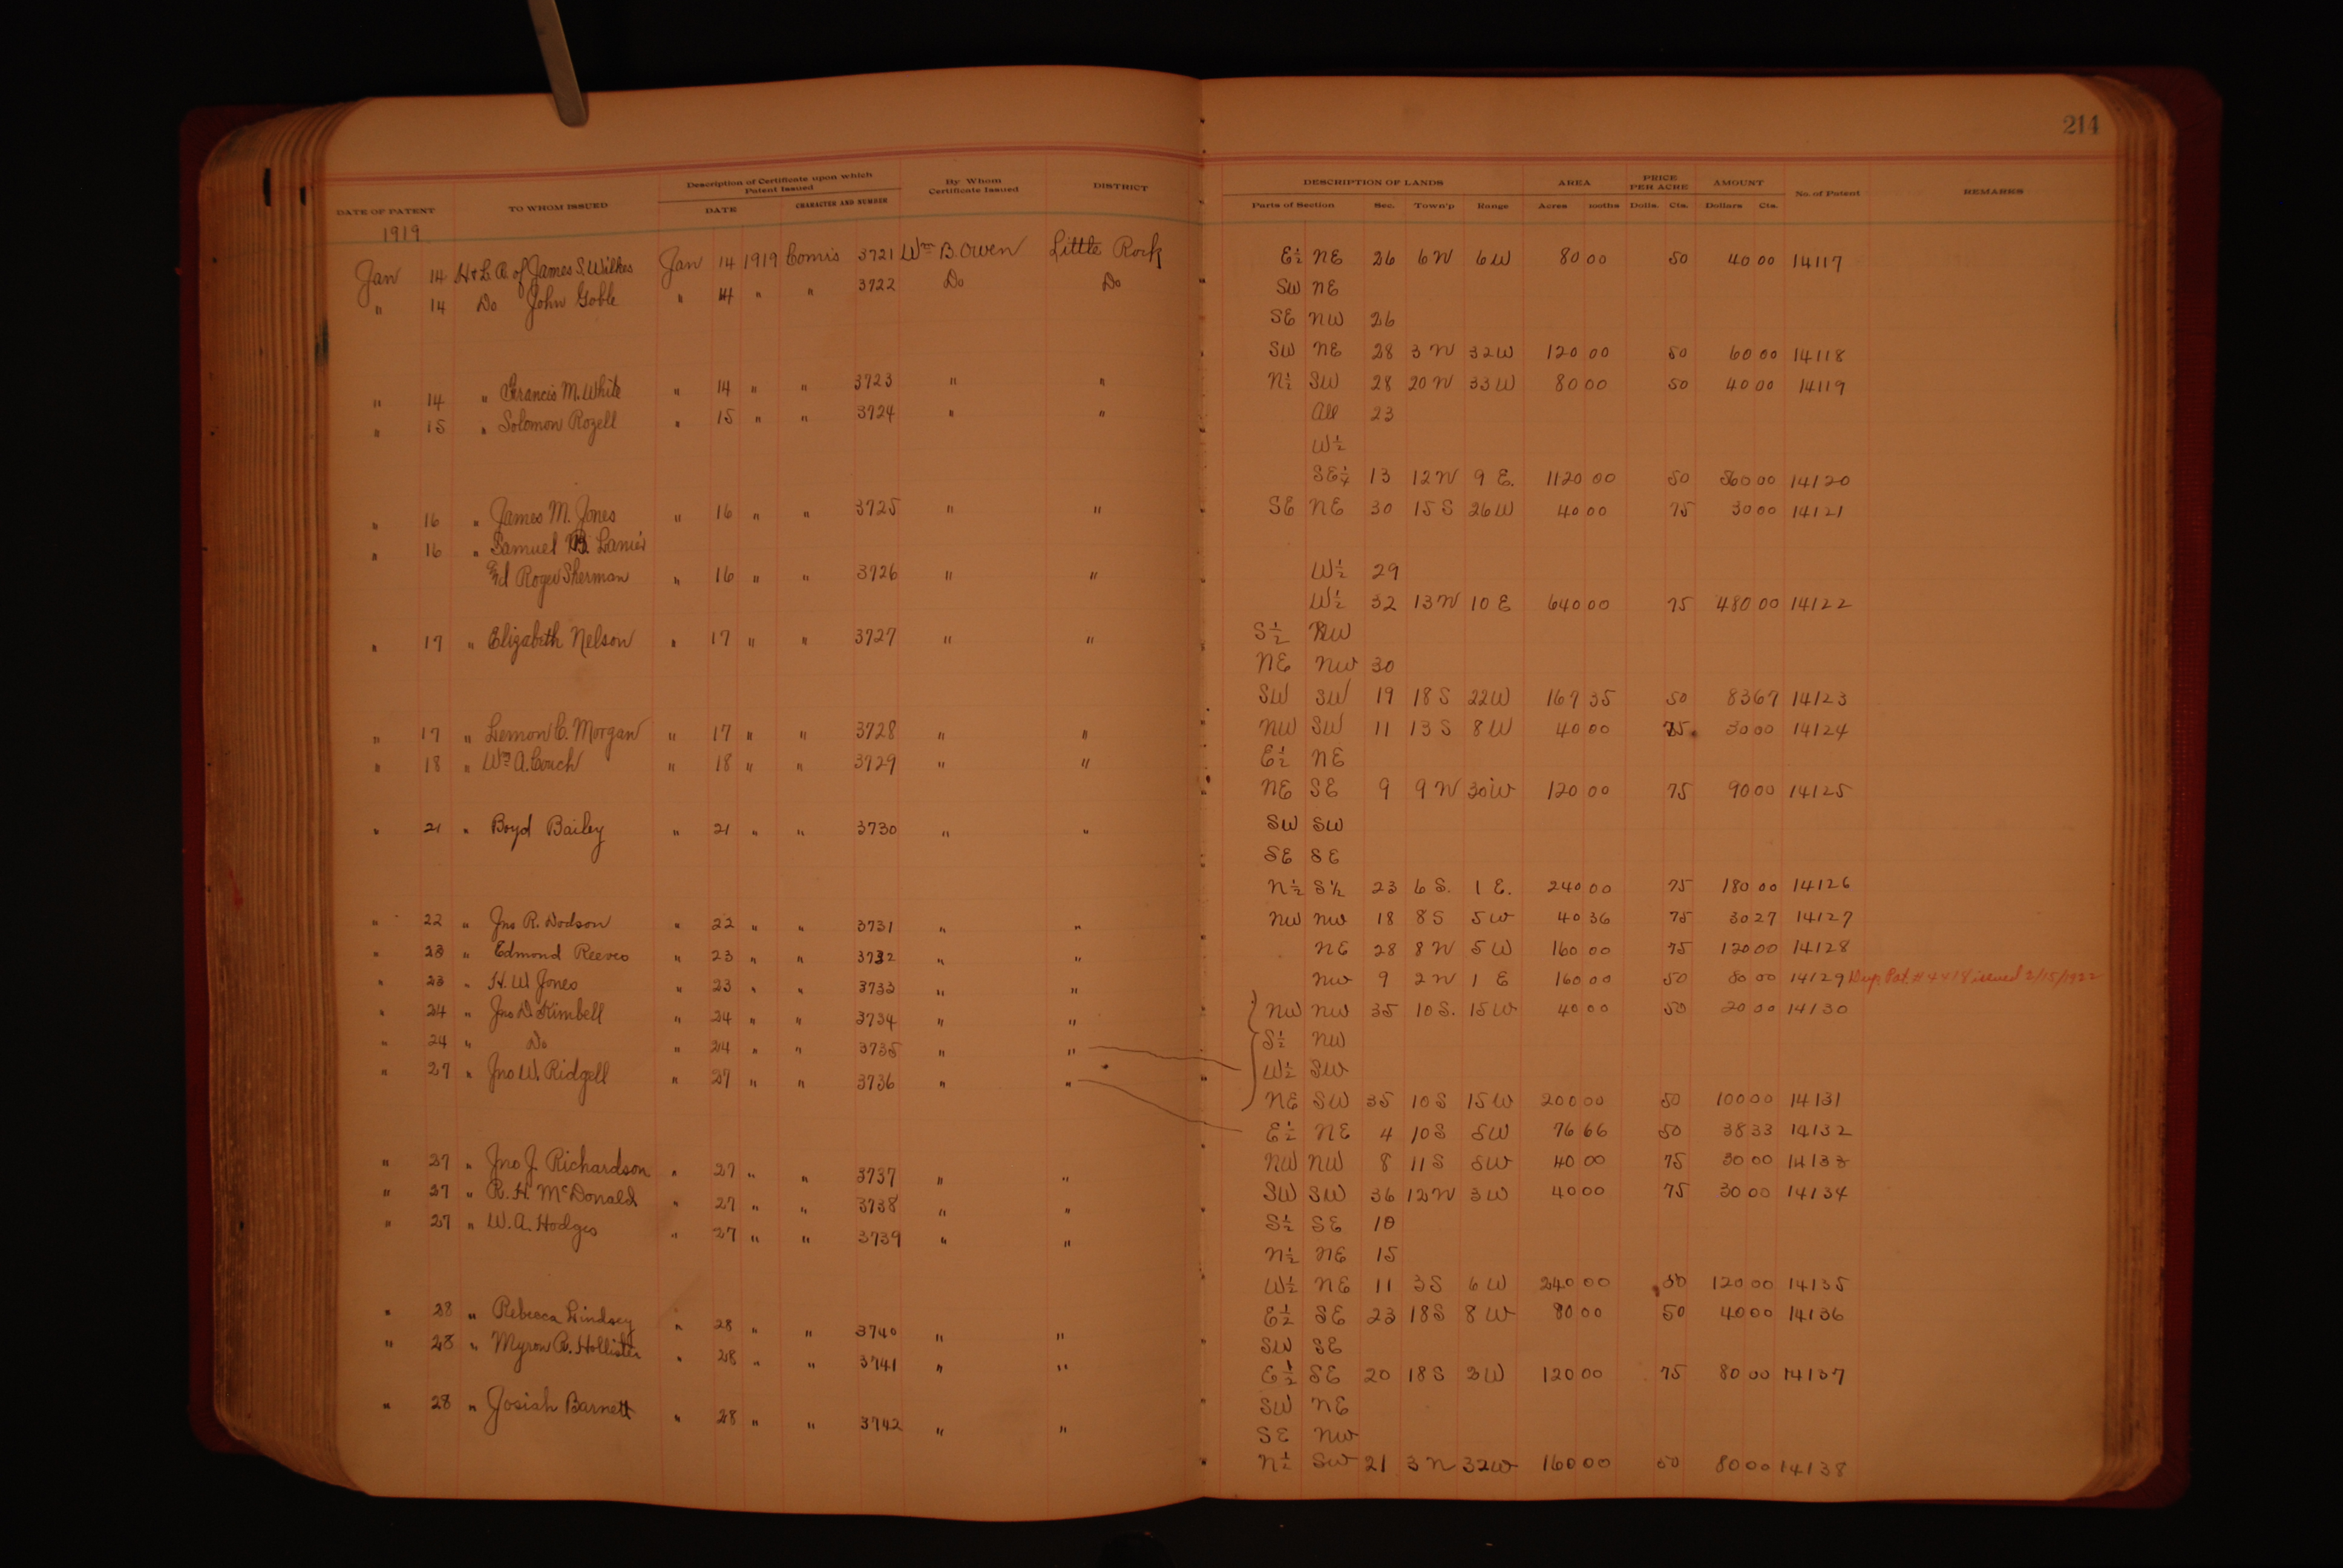 214
DATE OF PATENT TO WHOM ISSUED Description of Certificate upon which Patent Issued DATE CHARACTER AND NUMBER By Whom Certificate Issued DISTRICT DESCRIPTION OF LANDS Parts of Section Sec. Town'p Range AREA Acres 100ths PRICE PER ACRE Dolls. Cts. AMOUNT Dollars Cts. No. of Patent REMARKS
1919
Jan 14 H & L A. of James S. Wilkes Jan 14 1919 Comis 3721 Wm B. Owen Little Rock E½ NE 26 6 N 6 W 80 00 50 40 00 14117
" 14 Do John Goble " 14 " " 3722 Do Do SW NE
SE NW 26
SW NE 28 3 N 32W 120 00 50 60 00 14118
" 14 " Francis M. White " 14 " " 3723 " " N½ SW 28 20 N 33 W 80 00 50 40 00 14119
" 15 " Solomon Rozell " 15 " " 3724 " " All 23
W½
SE¼ 13 12 N 9 E. 1120 00 50 560 00 14120
" 16 " James M. Jones " 16 " " 3725 " " SE NE 30 15 S 26W 40 00 75 30 00 14121
" 16 " Samuel B. Lanier
and Roger Sherman " 16 " " 3726 " " W½ 29
W½ 32 13 N 10 E 640 00 75 480 00 14122
" 17 " Elizabeth Nelson " 17 " " 3727 " " S½ NW
NE NW 30
SW SW 19 18 S 22W 167 35 50 83 67 14123
" 17 " Lemon C. Morgan " 17 " " 3728 " " NW SW 11 13 S 8 W 40 00 75 30 00 14124
" 18 " Wm A. Couch " 18 " " 3729 " " E½ NE
NE SE 9 9 N 30W 120 00 75 90 00 14125
" 21 " Boyd Bailey " 21 " " 3730 " " SW SW
SE SE
N½ S½ 23 6 S. 1 E. 240 00 75 180 00 14126
" 22 " Jno R. Dodson " 22 " " 3731 " " NW NW 18 8 S 5 W 40 36 75 30 27 14127
" 23 " Edmond Reeves " 23 " " 3732 " " NE 28 8 N 5 W 160 00 75 120 00 14128
" 23 " H. W. Jones " 23 " " 3733 " " NW 9 2 N 1 E 160 00 50 80 00 14129 Dup. Pat. # 4418 issued 2/15/1922
" 24 " Jno D. Kimbell " 24 " " 3734 " " NW NW 35 10 S. 15W 40 00 50 20 00 14130
" 24 " Do " 24 " " 3735 " " S½ NW
W½ SW
NE SW 35 10 S 15 W 200 00 50 100 00 14131
" 27 " Jno W. Ridgell " 27 " " 3736 " " E½ NE 4 10 S 5W 76 66 50 38 33 14132
" 27 " Jno J. Richardson " 27 " " 3737 " " NW NW 8 11 S 5W 40 00 75 30 00 14133
" 27 " R. H. McDonald " 27 " " 3738 " " SW SW 36 12 N 3 W 40 00 75 30 00 14134
" 27 " W. A. Hodges " 27 " " 3739 " " S½ SE 10
N½ NE 15
W½ NE 11 3 S 6 W 240 00 50 120 00 14135
" 28 " Rebecca Lindsey " 28 " " 3740 " " E½ SE 23 18 S 8 W 80 00 50 40 00 14136
" 28 " Myron R. Hollister " 28 " " 3741 " " SW SE
E½ SE 20 18 S 3W 120 00 75 80 00 14137
" 28 " Josiah Barnett " 28 " " 3742 " " SW NE
SE NW
N½ SW 21 3 N 32W 160 00 50 80 00 14138